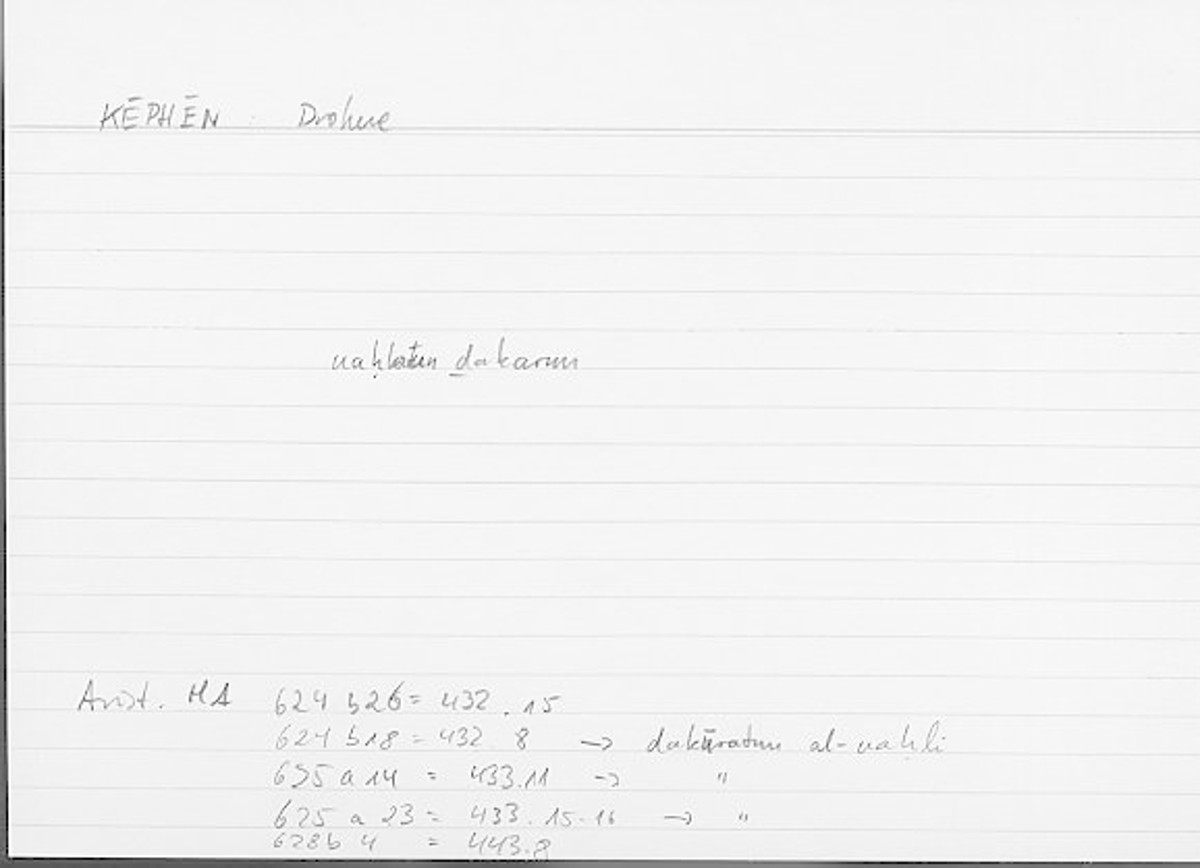 KĒPHĒN : Drohne
naḥlatun ḏakarun
Arist. HA 624 b26 = 432.15
624 b18 = 432 8 → dakūratun al-naḥli
625 a 14 = 433.11 → "
625 a 23 = 433.15-16 → "
628b 4 = 443.8